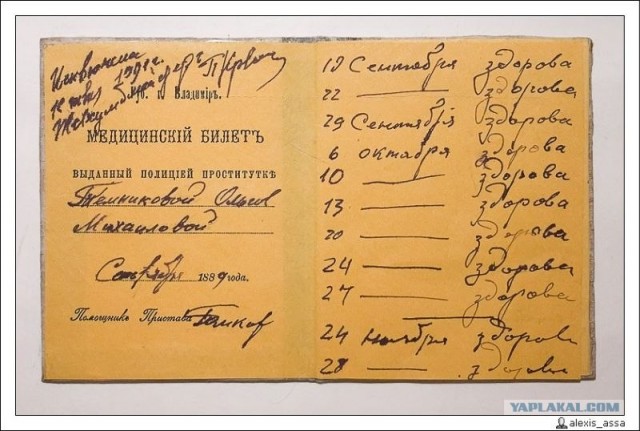 Исключена
1891 г.
Губ. г. Владимір.
МЕДИЦИНСКІЙ БИЛЕТЪ
ВЫДАННЫЙ ПОЛИЦІЕЙ ПРОСТИТУТКѢ
Темниковой Ольге
Михаиловой
Сентября 1889 года.
Помощникъ Пристава
19 Сентября здорова
22 — здорова
29 Сентября здорова
6 октября здорова
10 — здорова
13 — здорова
20 — здорова
24 — здорова
27 — здорова
24 Ноября здорова
28 — здорова
YAPLAKAL.COM
alexis_assa